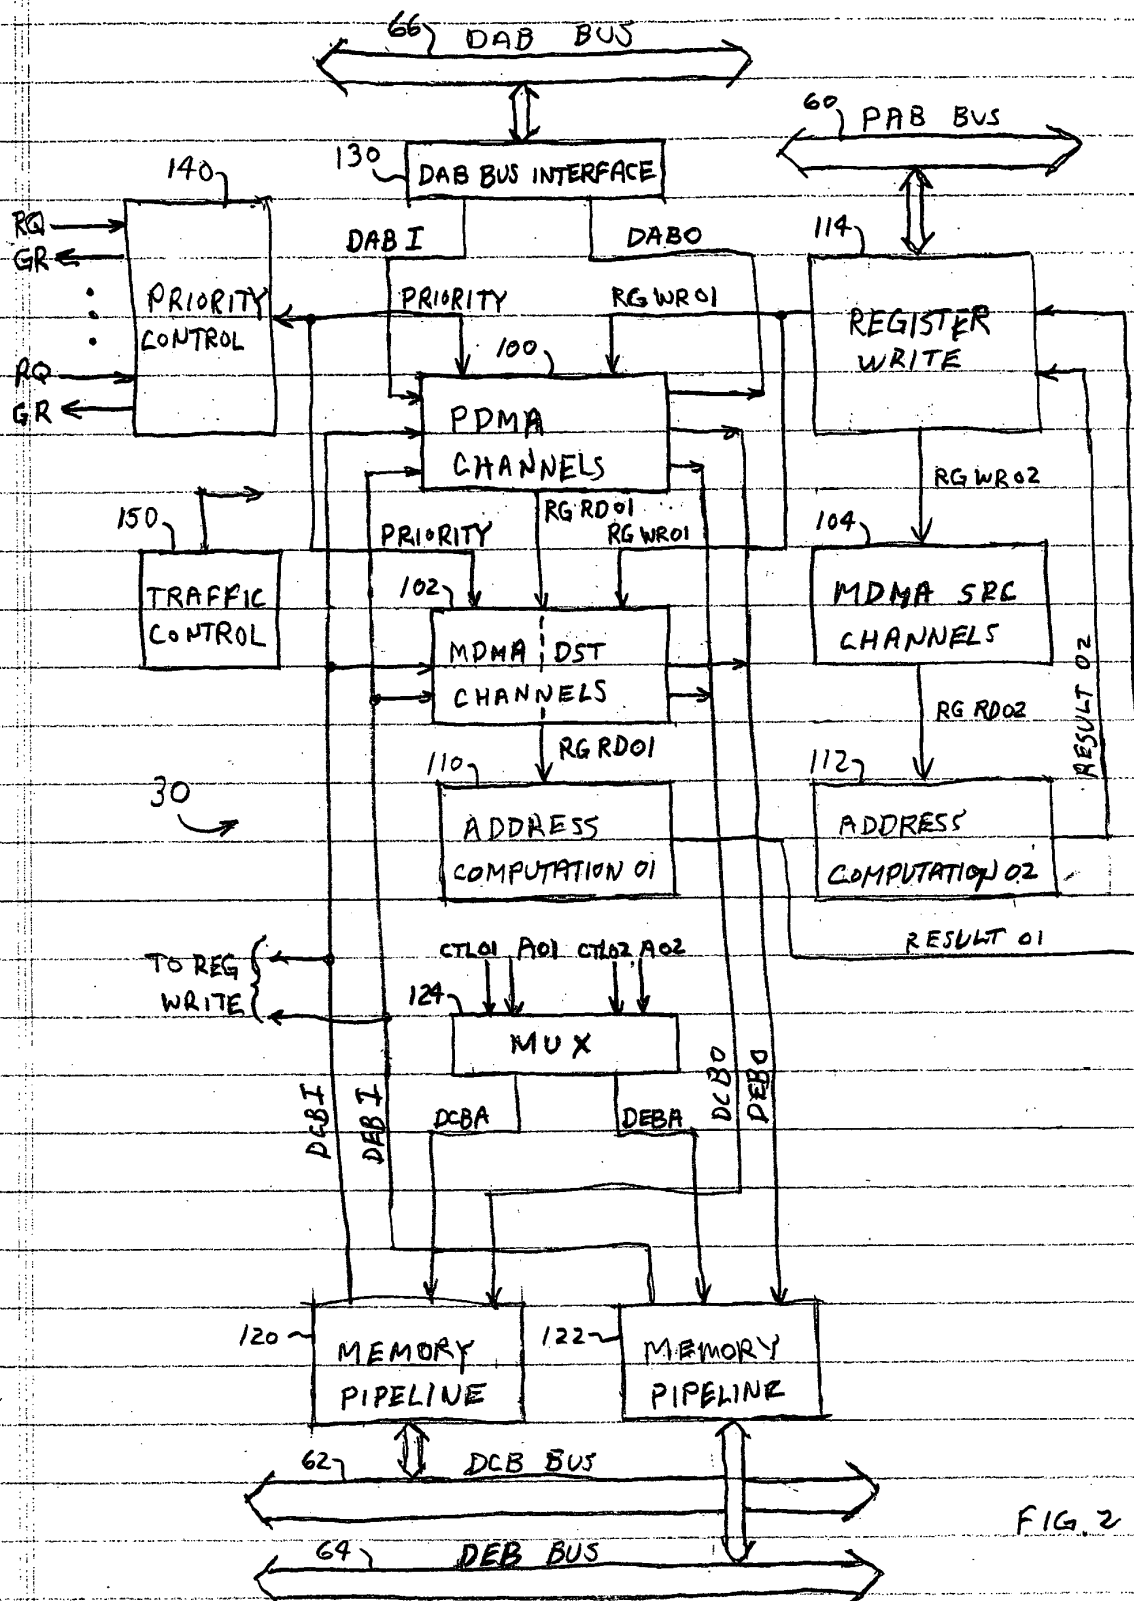 66 DAB BUS
60 PAB BUS
130
DAB BUS INTERFACE
140
RQ
GR
DAB I
DABO
114
PRIORITY
CONTROL
PRIORITY
RG WR01
REGISTER
WRITE
100
RQ
GR
PDMA
CHANNELS
RG WR02
RG RD01
150
PRIORITY
RG WR01
104
102
TRAFFIC
CONTROL
MDMA DST
CHANNELS
MDMA SRC
CHANNELS
RG RD01
RG RD02
RESULT 02
110
112
30
ADDRESS
COMPUTATION 01
ADDRESS
COMPUTATION 02
RESULT 01
TO REG
WRITE
CTL01 A01 CTL02 A02
124
MUX
DCBI
DEB I
DCBA
DEBA
DCBO
DEBO
120
MEMORY
PIPELINE
122
MEMORY
PIPELINE
62 DCB BUS
64 DEB BUS
FIG. 2